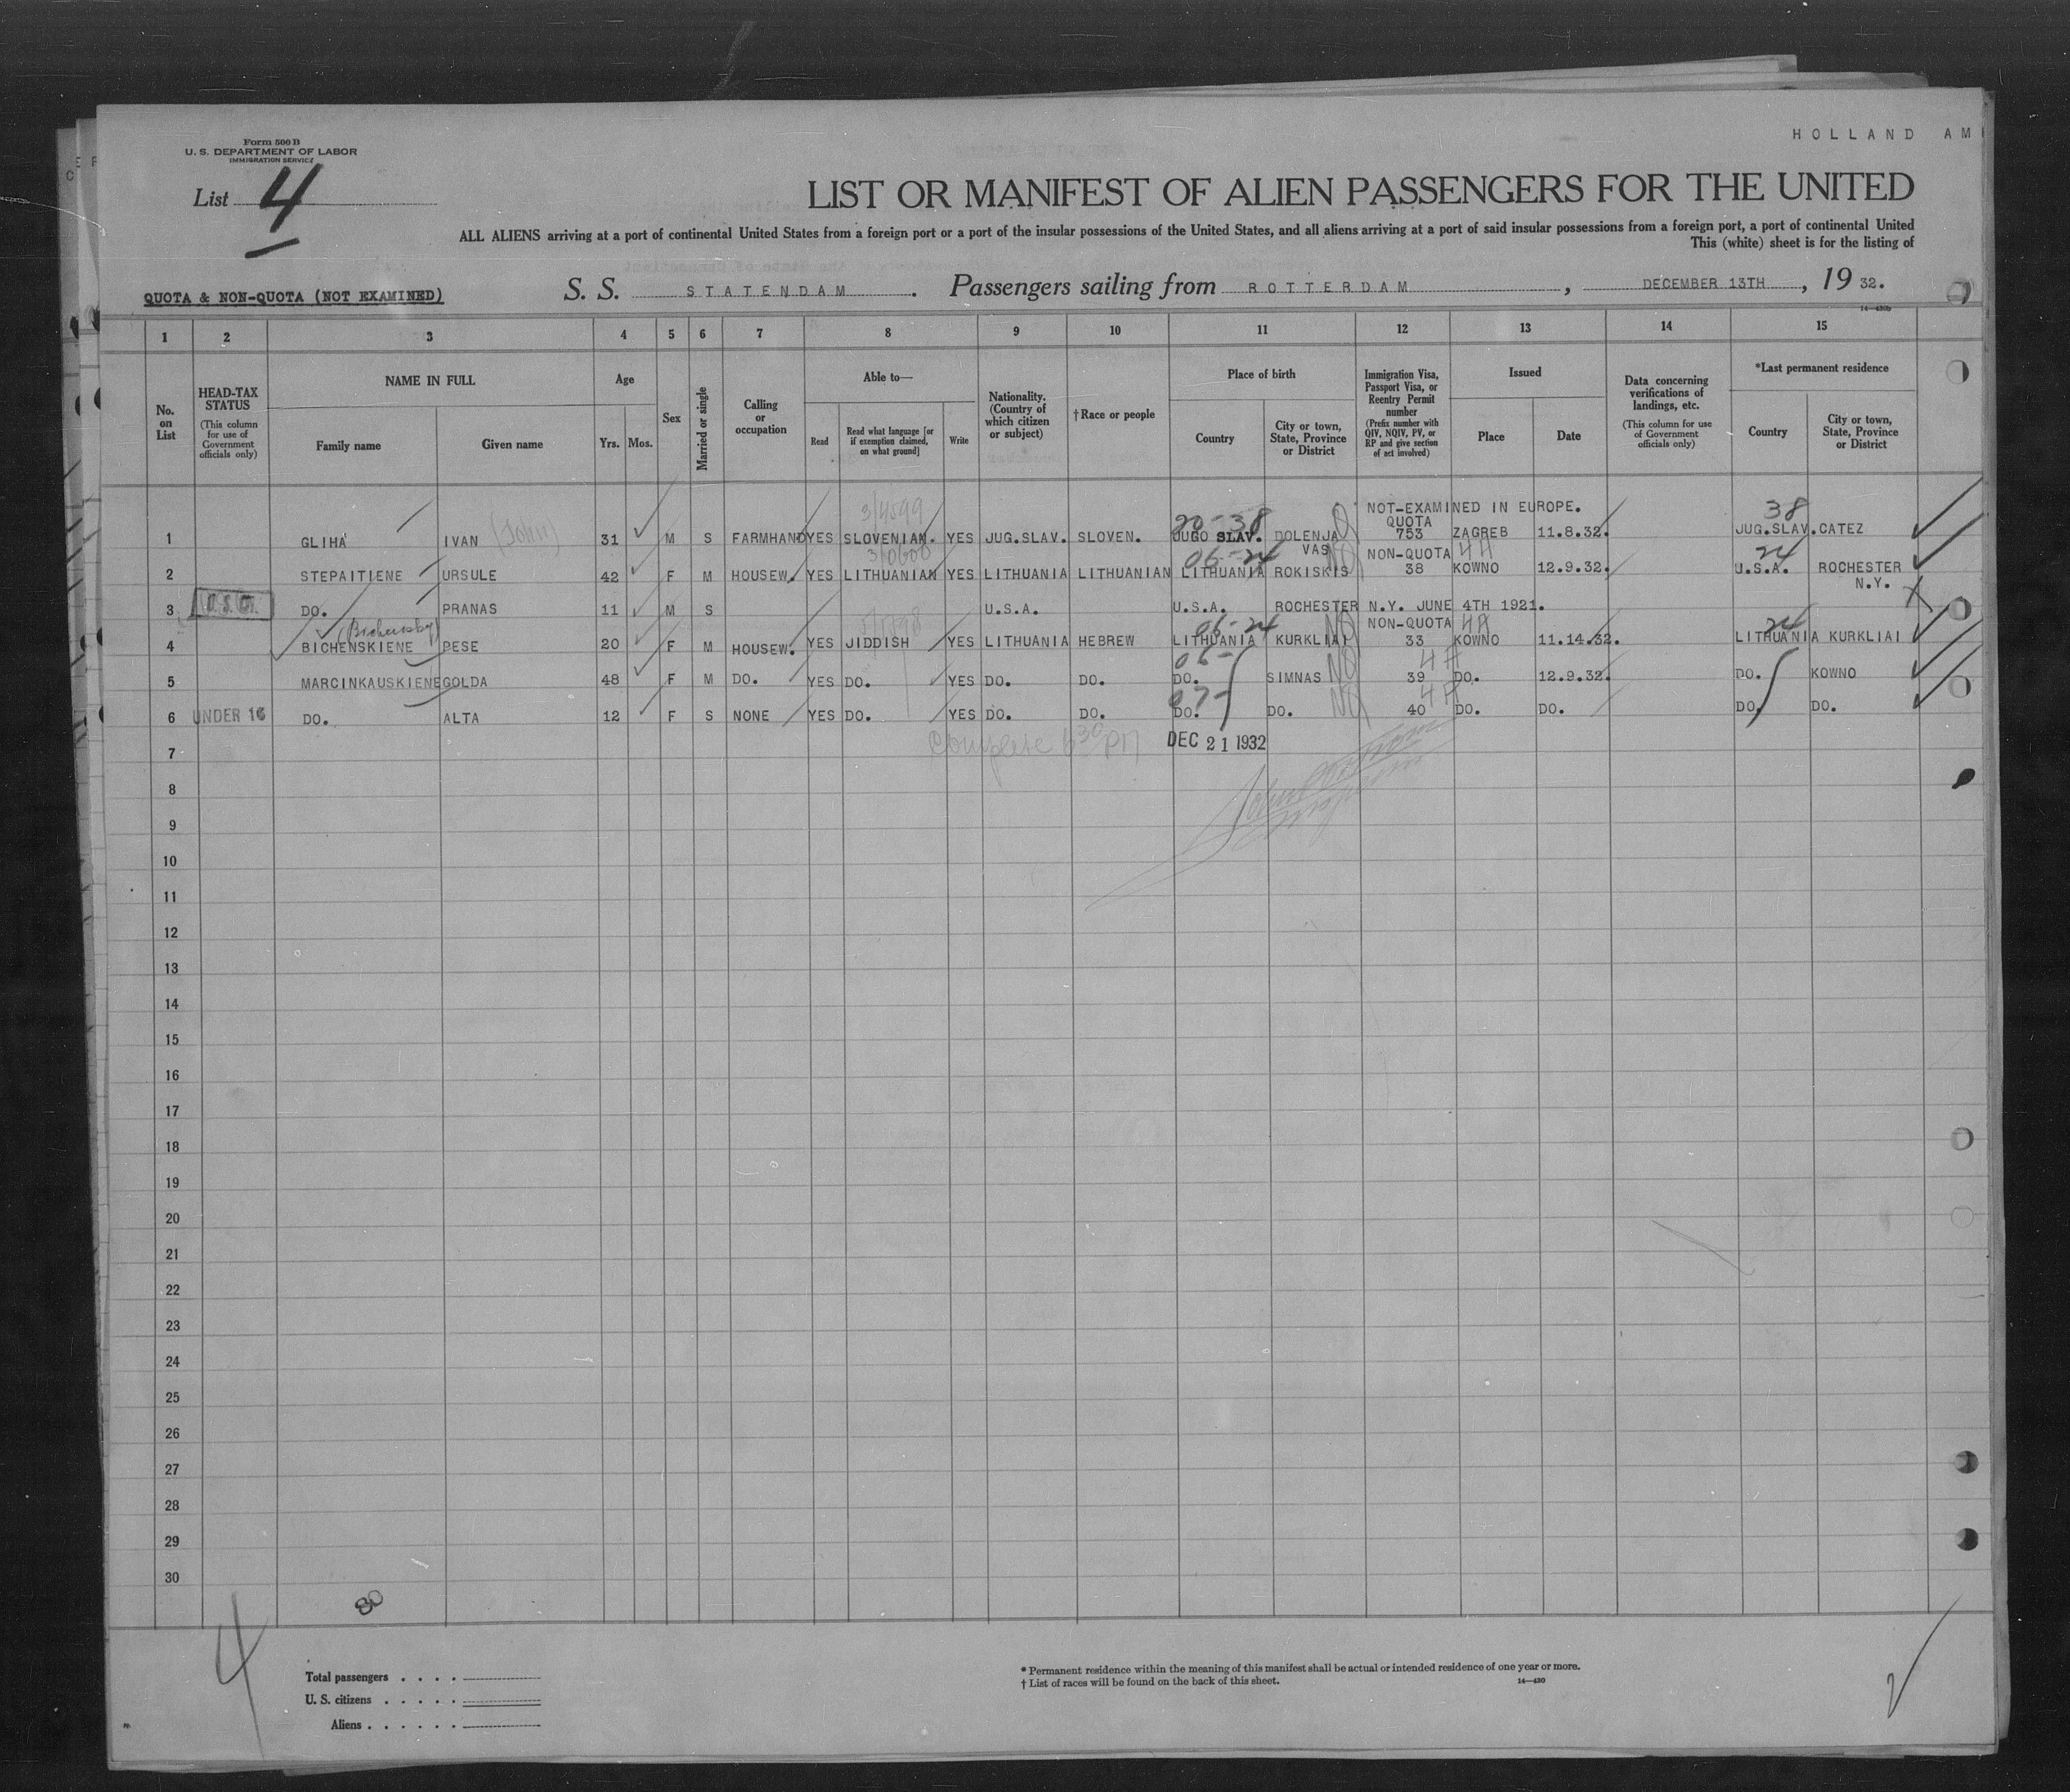 HOLLAND AM
Form 500 B
U. S. DEPARTMENT OF LABOR
IMMIGRATION SERVICE
List 4
LIST OR MANIFEST OF ALIEN PASSENGERS FOR THE UNITED
ALL ALIENS arriving at a port of continental United States from a foreign port or a port of the insular possessions of the United States, and all aliens arriving at a port of said insular possessions from a foreign port, a port of continental United
This (white) sheet is for the listing of
QUOTA & NON-QUOTA (NOT EXAMINED)
S. S. STATENDAM. Passengers sailing from ROTTERDAM, DECEMBER 13TH, 19 32.
14—430b
1 2 3 4 5 6 7 8 9 10 11 12 13 14 15
No. on List
HEAD-TAX STATUS
(This column for use of Government officials only)
NAME IN FULL
Family name
Given name
Age
Yrs. Mos.
Sex
Married or single
Calling or occupation
Able to—
Read
Read what language [or if exemption claimed, on what ground]
Write
Nationality. (Country of which citizen or subject)
†Race or people
Place of birth
Country
City or town, State, Province or District
Immigration Visa, Passport Visa, or Reentry Permit number
(Prefix number with QIV, NQIV, PV, or RP and give section of act involved)
Issued
Place
Date
Data concerning verifications of landings, etc.
(This column for use of Government officials only)
*Last permanent residence
Country
City or town, State, Province or District
NOT-EXAMINED IN EUROPE.
20-38 QUOTA 38
1 GLIHA IVAN (John) 31 M S FARMHAND YES SLOVENIAN. YES JUG.SLAV. SLOVEN. JUGO SLAV. DOLENJA VAS 753 ZAGREB 11.8.32. JUG.SLAV. CATEZ
06-24 NON-QUOTA 4A 24
2 STEPAITIENE URSULE 42 F M HOUSEW. YES LITHUANIAN YES LITHUANIA LITHUANIAN LITHUANIA ROKISKIS 38 KOWNO 12.9.32. U.S.A. ROCHESTER N.Y.
3 U.S.C. DO. PRANAS 11 M S U.S.A. U.S.A. ROCHESTER N.Y. JUNE 4TH 1921.
(Bichensky) 06-24 NON-QUOTA 4A 24
4 BICHENSKIENE PESE 20 F M HOUSEW. YES JIDDISH YES LITHUANIA HEBREW LITHUANIA KURKLIAI 33 KOWNO 11.14.32. LITHUANIA KURKLIAI
06- 4A
5 MARCINKAUSKIENE GOLDA 48 F M DO. YES DO. YES DO. DO. DO. SIMNAS 39 DO. 12.9.32. DO. KOWNO
07- 4A
6 UNDER 16 DO. ALTA 12 F S NONE YES DO. YES DO. DO. DO. DO. 40 DO. DO. DO. DO.
Complete 6 30 PM DEC 21 1932
7
8
9
10
11
12
13
14
15
16
17
18
19
20
21
22
23
24
25
26
27
28
29
30
80
4
Total passengers . . . .
U. S. citizens . . . . .
Aliens . . . . . .
* Permanent residence within the meaning of this manifest shall be actual or intended residence of one year or more.
† List of races will be found on the back of this sheet.
14—430